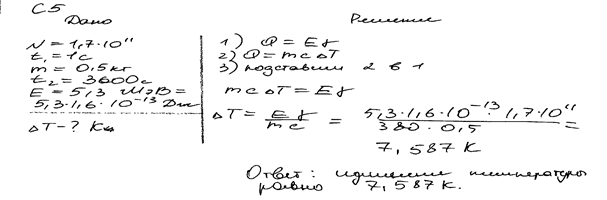 С5
Дано
N = 1,7·10¹¹
t₁ = 1с
m = 0,5 кг
t₂ = 3600 с
E = 5,3 МэВ =
5,3·1,6·10⁻¹³ Дж
ΔT - ? К
Решение
1) Q = Eγ
2) Q = mcΔT
3) подставим 2 в 1
mcΔT = Eγ
ΔT = Eγ / mc = 5,3·1,6·10⁻¹³·1,7·10¹¹ / 380·0,5 =
7,587 К
Ответ: изменение температуры
равно 7,587 К.